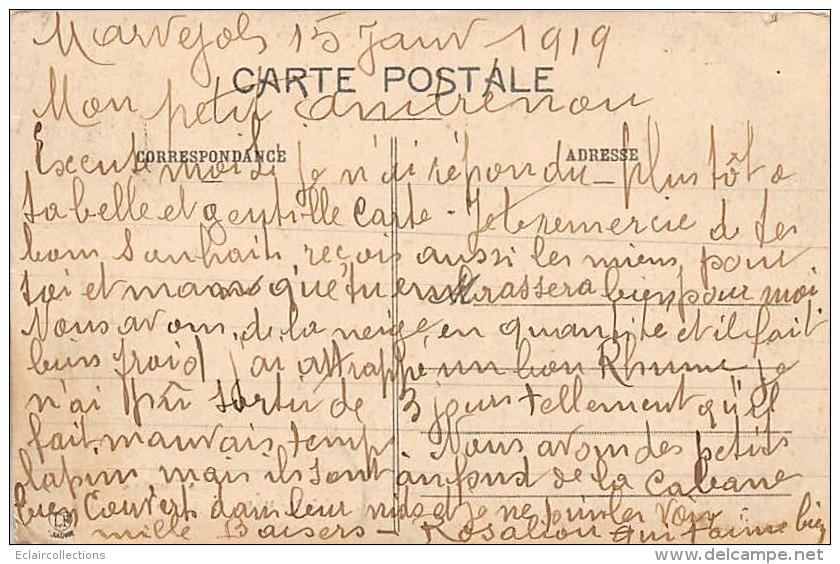 Marvejols 15 Janv 1919
CARTE POSTALE
Mon petit
CORRESPONDANCE ADRESSE
moi si je n'ai répondu plus tôt a
ta belle et gentille Carte - Je te remercie de tes
bons souhaits reçois aussi les miens pour
toi et maman que tu embrassera bien pour moi
Nous avons de la neige en quantité et il fait
bien froid j'ai attrappé un bon Rhume je
n'ai pu sortir de 3 jours tellement qu'il
fait mauvais temps Nous avons des petits
lapins mais ils sont au fond de la Cabane
bien Couverts dans leur nid et je ne puis les voir
mille Baisers - Rosalion qui t'aime bien
Eclaircollections
delcampe.net